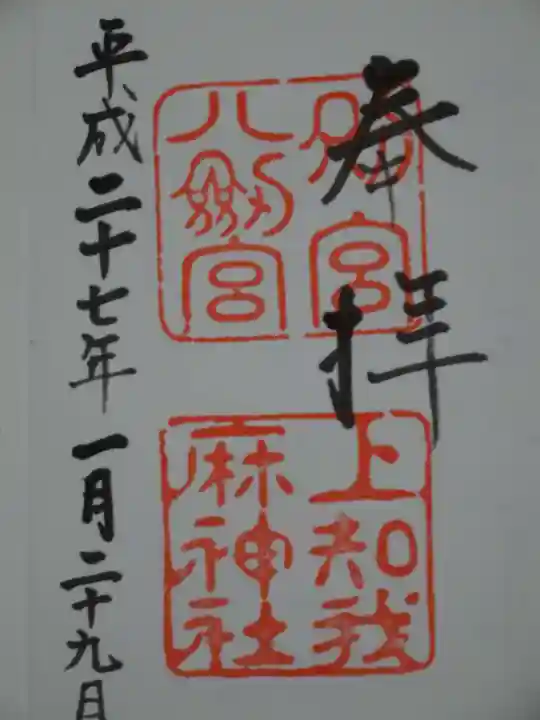 奉拝
宮
八剱宮
上知我
麻神社
平成二十七年一月二十九日